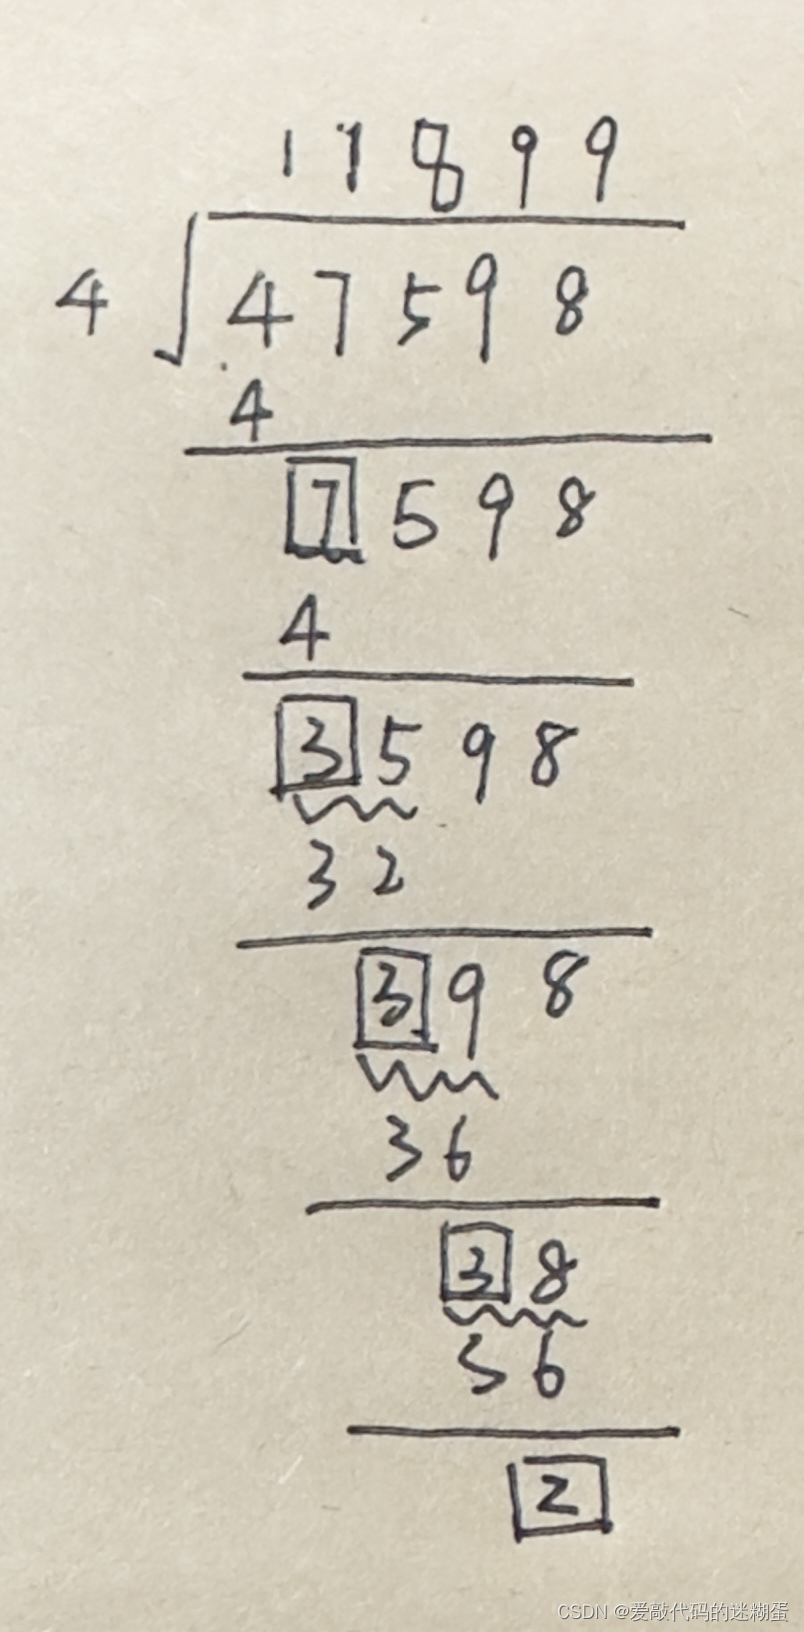 11899
4 47598
4
7598
4
3598
32
398
36
38
36
2
CSDN @爱敲代码的迷糊蛋